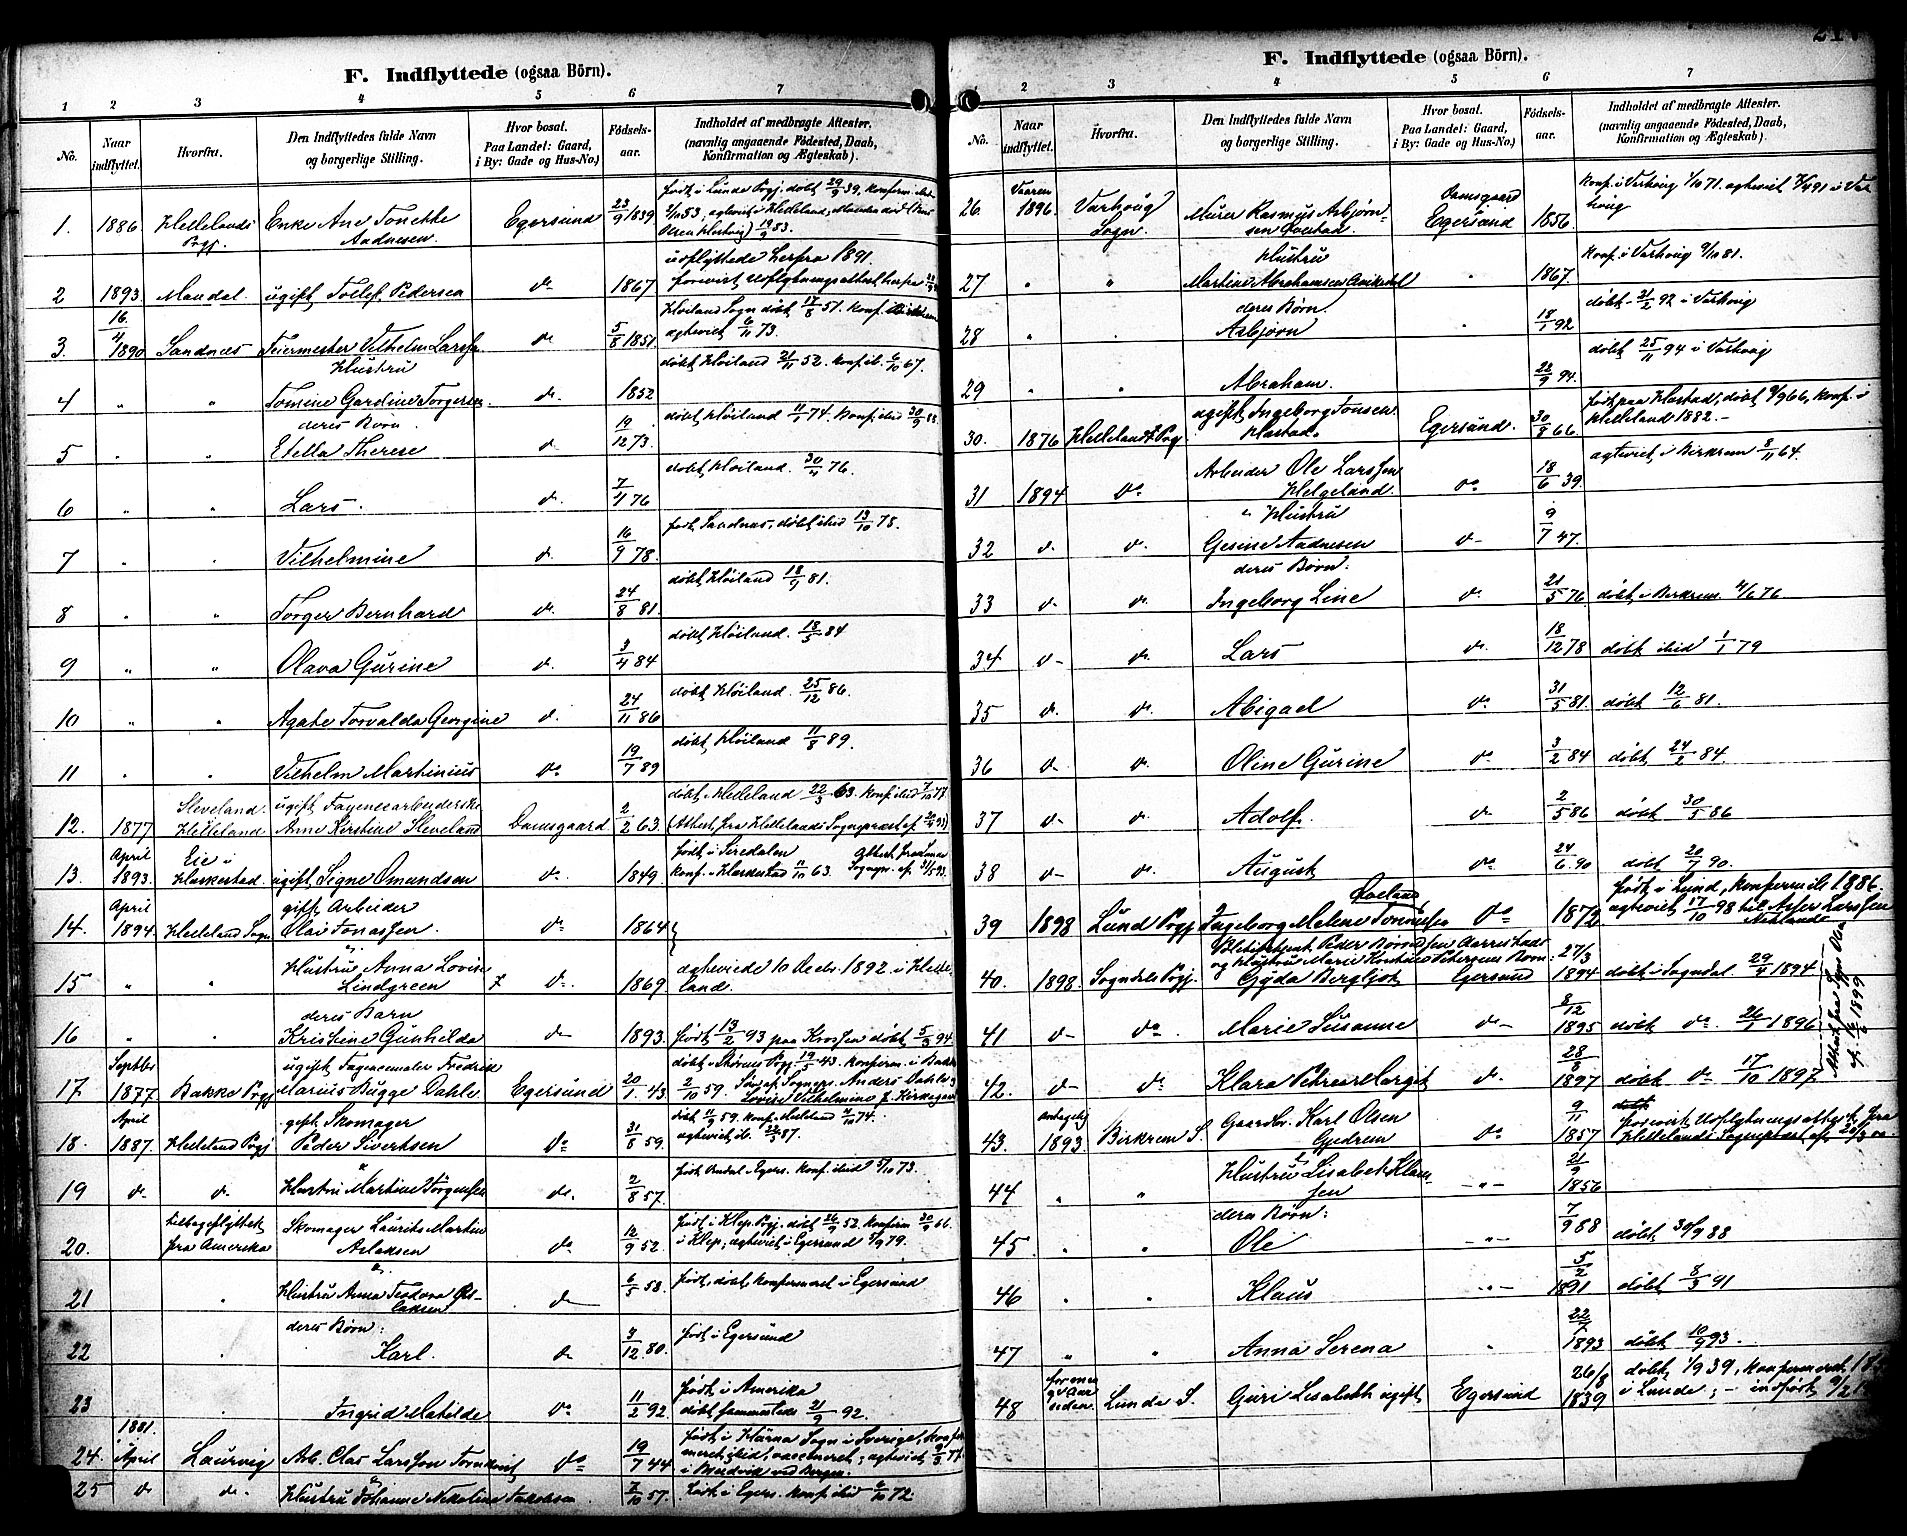 F. Indflyttede (ogsaa Börn).
1 2 3 4 5 6 7
No. Naar indflyttet. Hvorfra. Den Indflyttedes fulde Navn og borgerlige Stilling. Hvor bosat. Paa Landet: Gaard, i By: Gade og Hus-No.) Fødsels-aar. Indholdet af medbragte Attester, (navnlig angaaende Födested, Daab, Konfirmation og Ægteskab).
1. 1886 Hellelands Pgj. Enke Ane Tonette Aadnesen. Egersund 23/9 1839 født i Lunde Pgj. døbt 29/9 39,
udflyttede herfra 1891.
2 1893 Mandal. ugift Tollef Pedersen do 1867 forevist Udflytningsattest herfra
3. 16/4 1890 Sandnæs Feiermester Vilhelm Larsen do 5/8 1851 Høiland Sogn døbt 17/8 51. agteviet 6/11 73.
4 " " Hustru Tomine Gardine Torgersen do. 1852 døbt Høiland 21/11 52. konf. ib. 6/10 67.
5 " " deres Børn. Etella Therese do 19/12 73. døbt Høiland 11/1 74. konf. ibid 30/9 88.
6 " " Lars. do. 7/11 76 døbt Høiland. 30/11 76.
7 " " Vilhelmine d. 16/9 78. født Sandnæs, døbt ibid 13/10 78.
8 " " Torger Bernhard do. 24/8 81. døbt Høiland 18/9 81.
9 " " Olava Gurine d. 3/4 84 døbt Høiland. 18/5 84
10 " " Agate Torvalda Georgine d. 24/11 86 døbt Høiland. 25/12 86.
11 " " Vilhelm Martinius do 19/7 89 døbt Høiland 11/8 89.
12. 1877 Sleveland. Helleland ugift Fayencearbeiderske Anne Kirstine Sleveland Damsgaard 2/2 63. døbt i Helleland 22/3 63. konf. ibid 7/10 77 (Attest fra Hellelands Sogneprest af
13. April 1893. Eie i Heskestad. ugift Signe Omundsen do. 1849. født i Siredalen konf. i Heskestad 11/10 63. Attest fra Lunde Sogn. af 31/5 93.
14. April 1894. Helleland Sogn gift Arbeider Olai Jonassen. do 1864
15 " " Hustru Anna Lovise Lindgreen do. 1869 agteviede 10 Decbr. 1892 i Helleland.
16 " " deres Barn Kristine Gunhilda do 1893. født 13/2 93 paa Krossen døbt 5/3 94.
17. Septbr 1877. Bakke Pgj ugift Fagencemaler Fredrik Marius Bugge Dahle. Egersund 20/1 43. døbt Størens Pgj. 19/5 43. konferm. i Bakke 2/10 59. Søn af Sognepr. Anders Dahle & Lovise Vilhelmine f. Kirkegaard
18. April 1887. Helleland Pgj gift Skomager Peder Sivertsen do 31/8 59. døbt 11/9 59. konf. Helleland 4/10 74. agteviet ib. 22/5 87.
19 do do. Hustru Martine Jørgensen do. 2/8 57. født Ondal Egers. konf. ibid 5/10 73.
20. tilbageflyttet fra Amerika Skomager Laurits Martin Aslaksen do. 12/9 52. født i Klep Pgj. døbt 26/9 52. konferm 30/9 66. i Klep, agteviet i Egersund 5/9 79.
21 " Hustru Anna Teodora do 6/5 58. født, døbt, konfirmeret i Egersund
22 " deres Børn: Karl. do 3/12 80. født i Egersund
23 " Ingrid Matilde do 11/2 92. født i Amerika døbt sammesteds 21/9 92.
24. 1881. April Laurvig Arb. Olas Larsson Tornkvist do 19/7 44 født i Härna Sogn i Sverige, konfirmeret ibid, vaccineret; agteviet
25 do do. Hustru Johanne Nikoline Jakobsen. 7/10 57. Født i Egers. konf. ibid 6/10 72

F. Indflyttede (ogsaa Börn).
1 2 3 4 5 6 7
No. Naar indflyttet. Hvorfra. Den Indflyttedes fulde Navn og borgerlige Stilling. Hvor bosat. Paa Landet: Gaard, i By: Gade og Hus-No.) Födsels-aar. Indholdet af medbragte Attester. (navnlig angaaende Födested, Daab, Konfirmation og Ægteskab).
26. Vaaren 1896. Varhoug Sogn. Murer Rasmus Asbjørnsen Damsgaard Egersund 1856. konf. i Varhoug 1/10 71. agteviet i Varhoug
27 " " Hustru Martine Abrahamsen " 1867. konf. i Varhoug 9/10 81.
28 " " deres Børn. Asbjørn " 18/1 92 døbt 21/2 92 i Varhoug
29 " " Abraham. 22/9 94. døbt 25/11 94 i Varhoug
30. 1876 Hellelands Pgj ugift Ingeborg Tonsen Hastad. Egersund. 30/8 66. født paa Hastad, døbt 9/9 66, konf. i Helleland 1882.-
31 1894 do Arbeider Ole Larssen Helgeland. do 18/6 39. agteviet i Birkrem 8/11 64.
32 d. d. " Hustru Gesine Aadnesen d- 9/7 47.
33 d- d. deres Børn: Ingeborg Line do 21/5 76. døbt i Birkrem. 4/6 76
34 d- do. Lars do. 18/12 78 døbt ibid 1/1 79
35 d. do. Abigael do 31/5 81. døbt 12/6 81.
36 d- d. Oline Gurine do 3/2 84 døbt 24/2 84.
37 d- do. Adolf. do 2/5 86 døbt 30/5 86
38 d- d. August do 24/6 90 døbt 20/7 90.
39 1898 Lund Pgj Ingeborg Malene Tonnesen do 1872 født i Lund, konferm ib 1886. agteviet 17/10 98 til Asser Larssen
40. 1898. Sogndals Pgj. og Hustru Marie Kristine Petersens Børn: Gyda Bergljot Egersund 27/3 1894 døbt i Sogndal 29/4 1894
41 d- do. Marie Susanne do- 8/12 1895 døbt do. 26/1 1896
42. d- do Klara Petrea Margit d. 28/8 1897 døbt do 17/10 1897.
43. antagelig 1893. Birkrem S. Gaardbr. Karl Olsen Gjedrem do 9/11 1857 forevist Udflytningsattest fra Hellelands Sogneprest af 20/3 00.
44 " " Hustru Lisabet Klausen -"- 21/9 1856
45 " " deres Børn: Ole -"- 7/9 88 døbt 30/9 88
46 " " Klaus "- 5/2 1891 døbt 8/3 91
47 " " Anna Serena " 22/7 1893 døbt 10/9 93.
48 Lunde S. Guri Lisabeth ugift Egersund 26/8 1839 døbt 1/9 39, konfirmeret i Lunde; - indført